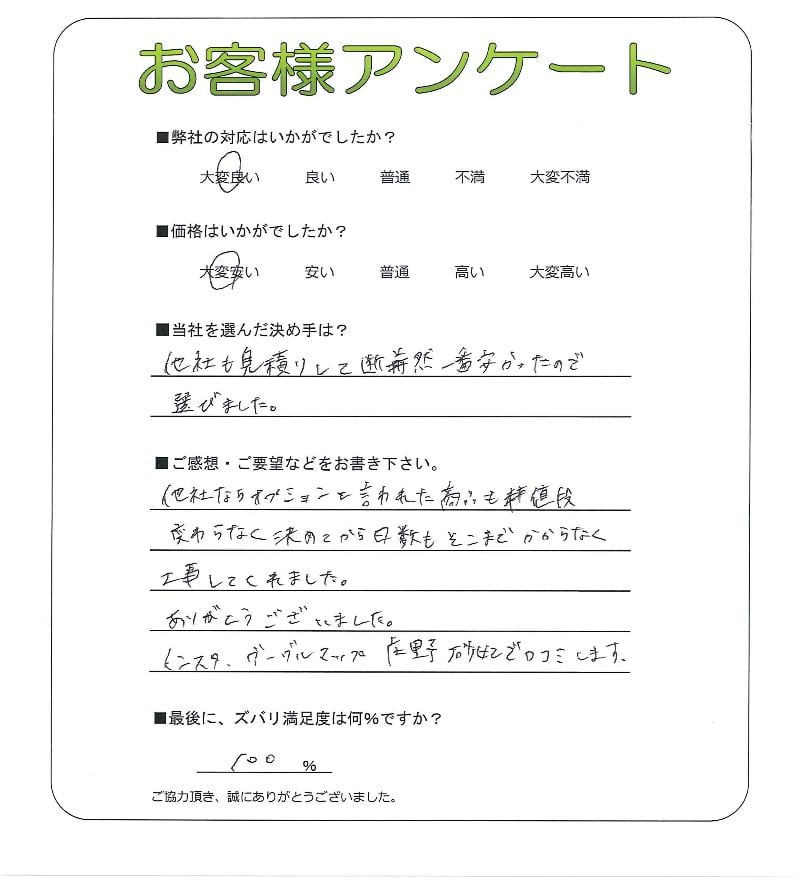 お客様アンケート
■弊社の対応はいかがでしたか？
大変良い 良い 普通 不満 大変不満
■価格はいかがでしたか？
大変安い 安い 普通 高い 大変高い
■当社を選んだ決め手は？
他社も見積りして断然一番安かったので
選びました。
■ご感想・ご要望などをお書き下さい。
他社ならオプションと言われた商品も値段
変わらなく決めてから日数もそこまでかからなく
工事してくれました。
ありがとうございました。
インスタ、グーグルマップ 庄野 で口コミします。
■最後に、ズバリ満足度は何%ですか？
100 %
ご協力頂き、誠にありがとうございました。